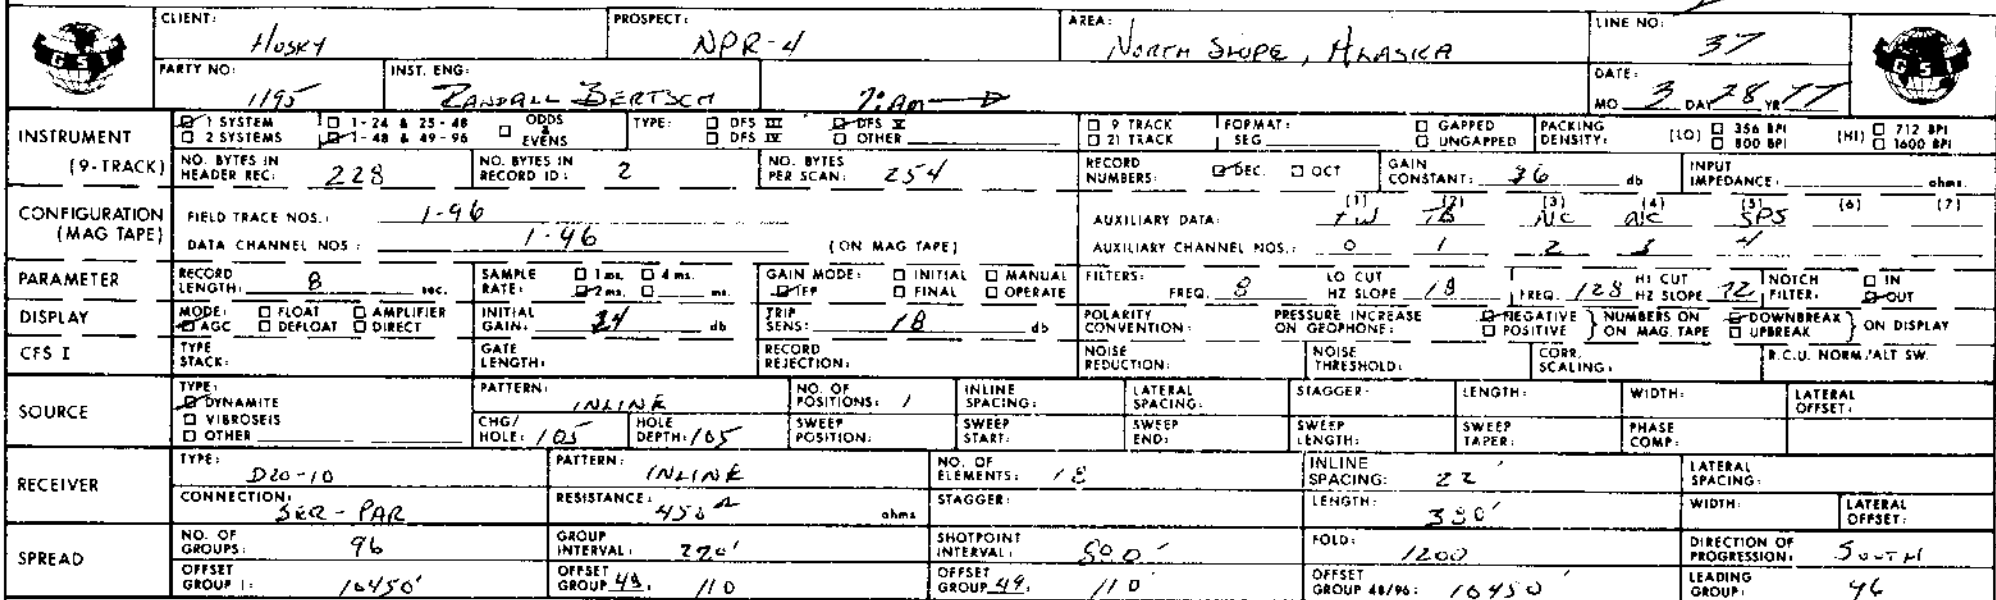 CLIENT: Husky PROSPECT: NPR-4 AREA: NORTH SLOPE, ALASKA LINE NO: 37
GSI GSI
PARTY NO: 1195 INST. ENG: RANDALL BERTSCH 7:Am DATE: MO 3 DAY 28 YR 77
INSTRUMENT 1 SYSTEM 1-24 & 25-48 ODDS & EVENS TYPE: DFS III DFS V 9 TRACK FORMAT: GAPPED PACKING DENSITY: (LO) 356 BPI (HI) 712 BPI
2 SYSTEMS 1-48 & 49-96 DFS IV OTHER 21 TRACK SEG UNGAPPED 800 BPI 1600 BPI
(9-TRACK) NO. BYTES IN HEADER REC: 228 NO. BYTES IN RECORD ID: 2 NO. BYTES PER SCAN: 254 RECORD NUMBERS: DEC. OCT GAIN CONSTANT: 36 db INPUT IMPEDANCE: ohms.
CONFIGURATION FIELD TRACE NOS.: 1-96 AUXILIARY DATA: (1) (2) TB (3) (4) (5) SPS (6) (7)
(MAG TAPE) DATA CHANNEL NOS: 1-96 (ON MAG TAPE) AUXILIARY CHANNEL NOS.: 0 1 2 3 4
PARAMETER RECORD LENGTH: 8 sec. SAMPLE RATE: 1 ms. 4 ms. 2 ms. ms. GAIN MODE: INITIAL MANUAL IFP FINAL OPERATE FILTERS: FREQ. 8 LO CUT HZ SLOPE 18 FREQ. 128 HI CUT HZ SLOPE 72 NOTCH FILTER: IN OUT
DISPLAY MODE: FLOAT AMPLIFIER AGC DEFLOAT DIRECT INITIAL GAIN: 24 db TRIP SENS: 18 db POLARITY CONVENTION: PRESSURE INCREASE ON GEOPHONE: NEGATIVE POSITIVE } NUMBERS ON MAG. TAPE DOWNBREAK UPBREAK } ON DISPLAY
CFS I TYPE STACK: GATE LENGTH: RECORD REJECTION: NOISE REDUCTION: NOISE THRESHOLD: CORR. SCALING: R.C.U. NORM/ALT SW.
SOURCE TYPE: DYNAMITE VIBROSEIS OTHER PATTERN: INLINE NO. OF POSITIONS: 1 INLINE SPACING: LATERAL SPACING: STAGGER: LENGTH: WIDTH: LATERAL OFFSET:
CHG/HOLE: 105 HOLE DEPTH: 105 SWEEP POSITION: SWEEP START: SWEEP END: SWEEP LENGTH: SWEEP TAPER: PHASE COMP:
RECEIVER TYPE: D20-10 PATTERN: INLINE NO. OF ELEMENTS: 18 INLINE SPACING: 22' LATERAL SPACING:
CONNECTION: SER-PAR RESISTANCE: 450 Ω ohms STAGGER: LENGTH: 380' WIDTH: LATERAL OFFSET:
SPREAD NO. OF GROUPS: 96 GROUP INTERVAL: 220' SHOTPOINT INTERVAL: FOLD: 1200 DIRECTION OF PROGRESSION: SOUTH
OFFSET GROUP 1: 10450' OFFSET GROUP 48: 110 OFFSET GROUP 49: 110' OFFSET GROUP 48/96: 10450' LEADING GROUP: 96